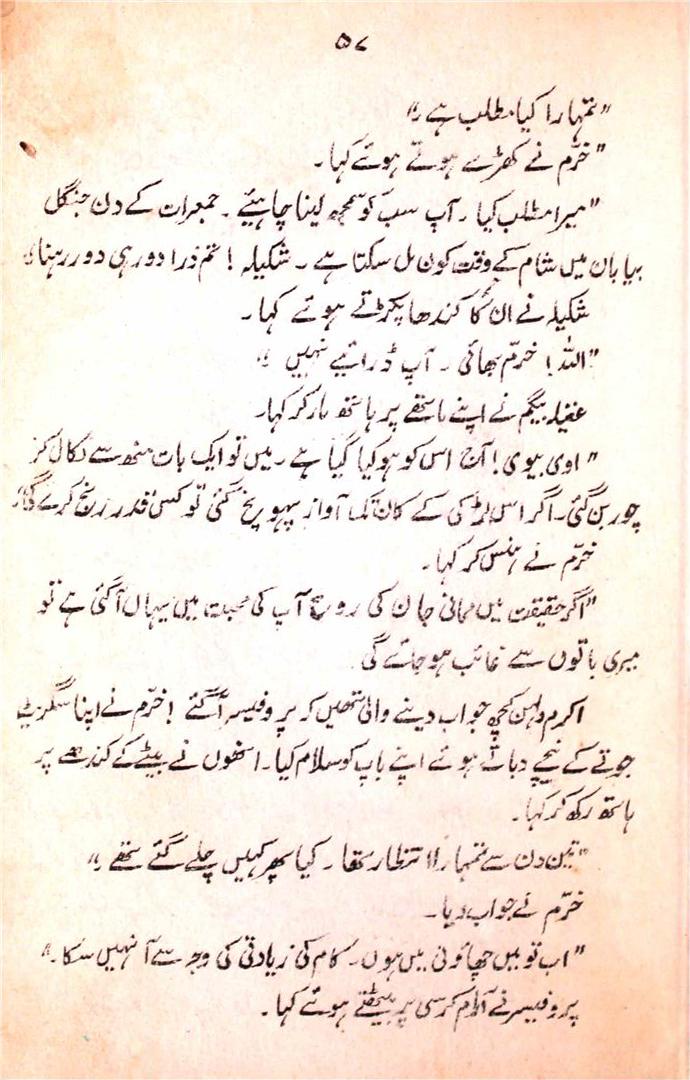 ۵۷
"تمہارا کیا مطلب ہے؟"
"خرّم نے کھڑے ہوتے ہوئے کہا۔
"میرا مطلب کیا۔ آپ سب کو سمجھ لینا چاہیئے۔ جمعرات کے دن جنگل
بیابان میں شام کے وقت کون مل سکتا ہے۔ شکیلہ! تم ذرا دور ہی دور رہنا"
شکیلہ نے ان کا کندھا پکڑتے ہوئے کہا۔
"اللہ! خرّم بھائی۔ آپ ڈرائیے نہیں"
عقیلہ بیگم نے اپنے ماتھے پر ہاتھ مار کر کہا۔
"اوی بیوی! آج اس کو ہو کیا گیا ہے۔ میں تو ایک بات منھ سے نکال کر
چور بن گئی۔ اگر اس لڑکی کے کان تک آواز پہونچ گئی تو کس قدر رنج کرے گی"
خرّم نے ہنس کر کہا۔
"اگر حقیقت میں ممانی جان کی روح آپ کی محبت میں یہاں آگئی ہے تو
میری باتوں سے غائب ہو جائے گی
اکرم دلہن کچھ جواب دینے والی تھیں کہ پروفیسر آگئے! خرّم نے اپنا سگریٹ
جوتے کے نیچے دباتے ہوئے اپنے باپ کو سلام کیا۔ انھوں نے بیٹے کے کندھے پر
ہاتھ رکھ کر کہا۔
"تین دن سے تمہارا انتظار تھا۔ کیا پھر کہیں چلے گئے تھے"
خرّم نے جواب دیا۔
"اب تو میں چھاؤنی میں ہوں۔ کام کی زیادتی کی وجہ سے آ نہیں سکا۔"
پروفیسر نے آرام کرسی پر بیٹھتے ہوئے کہا۔